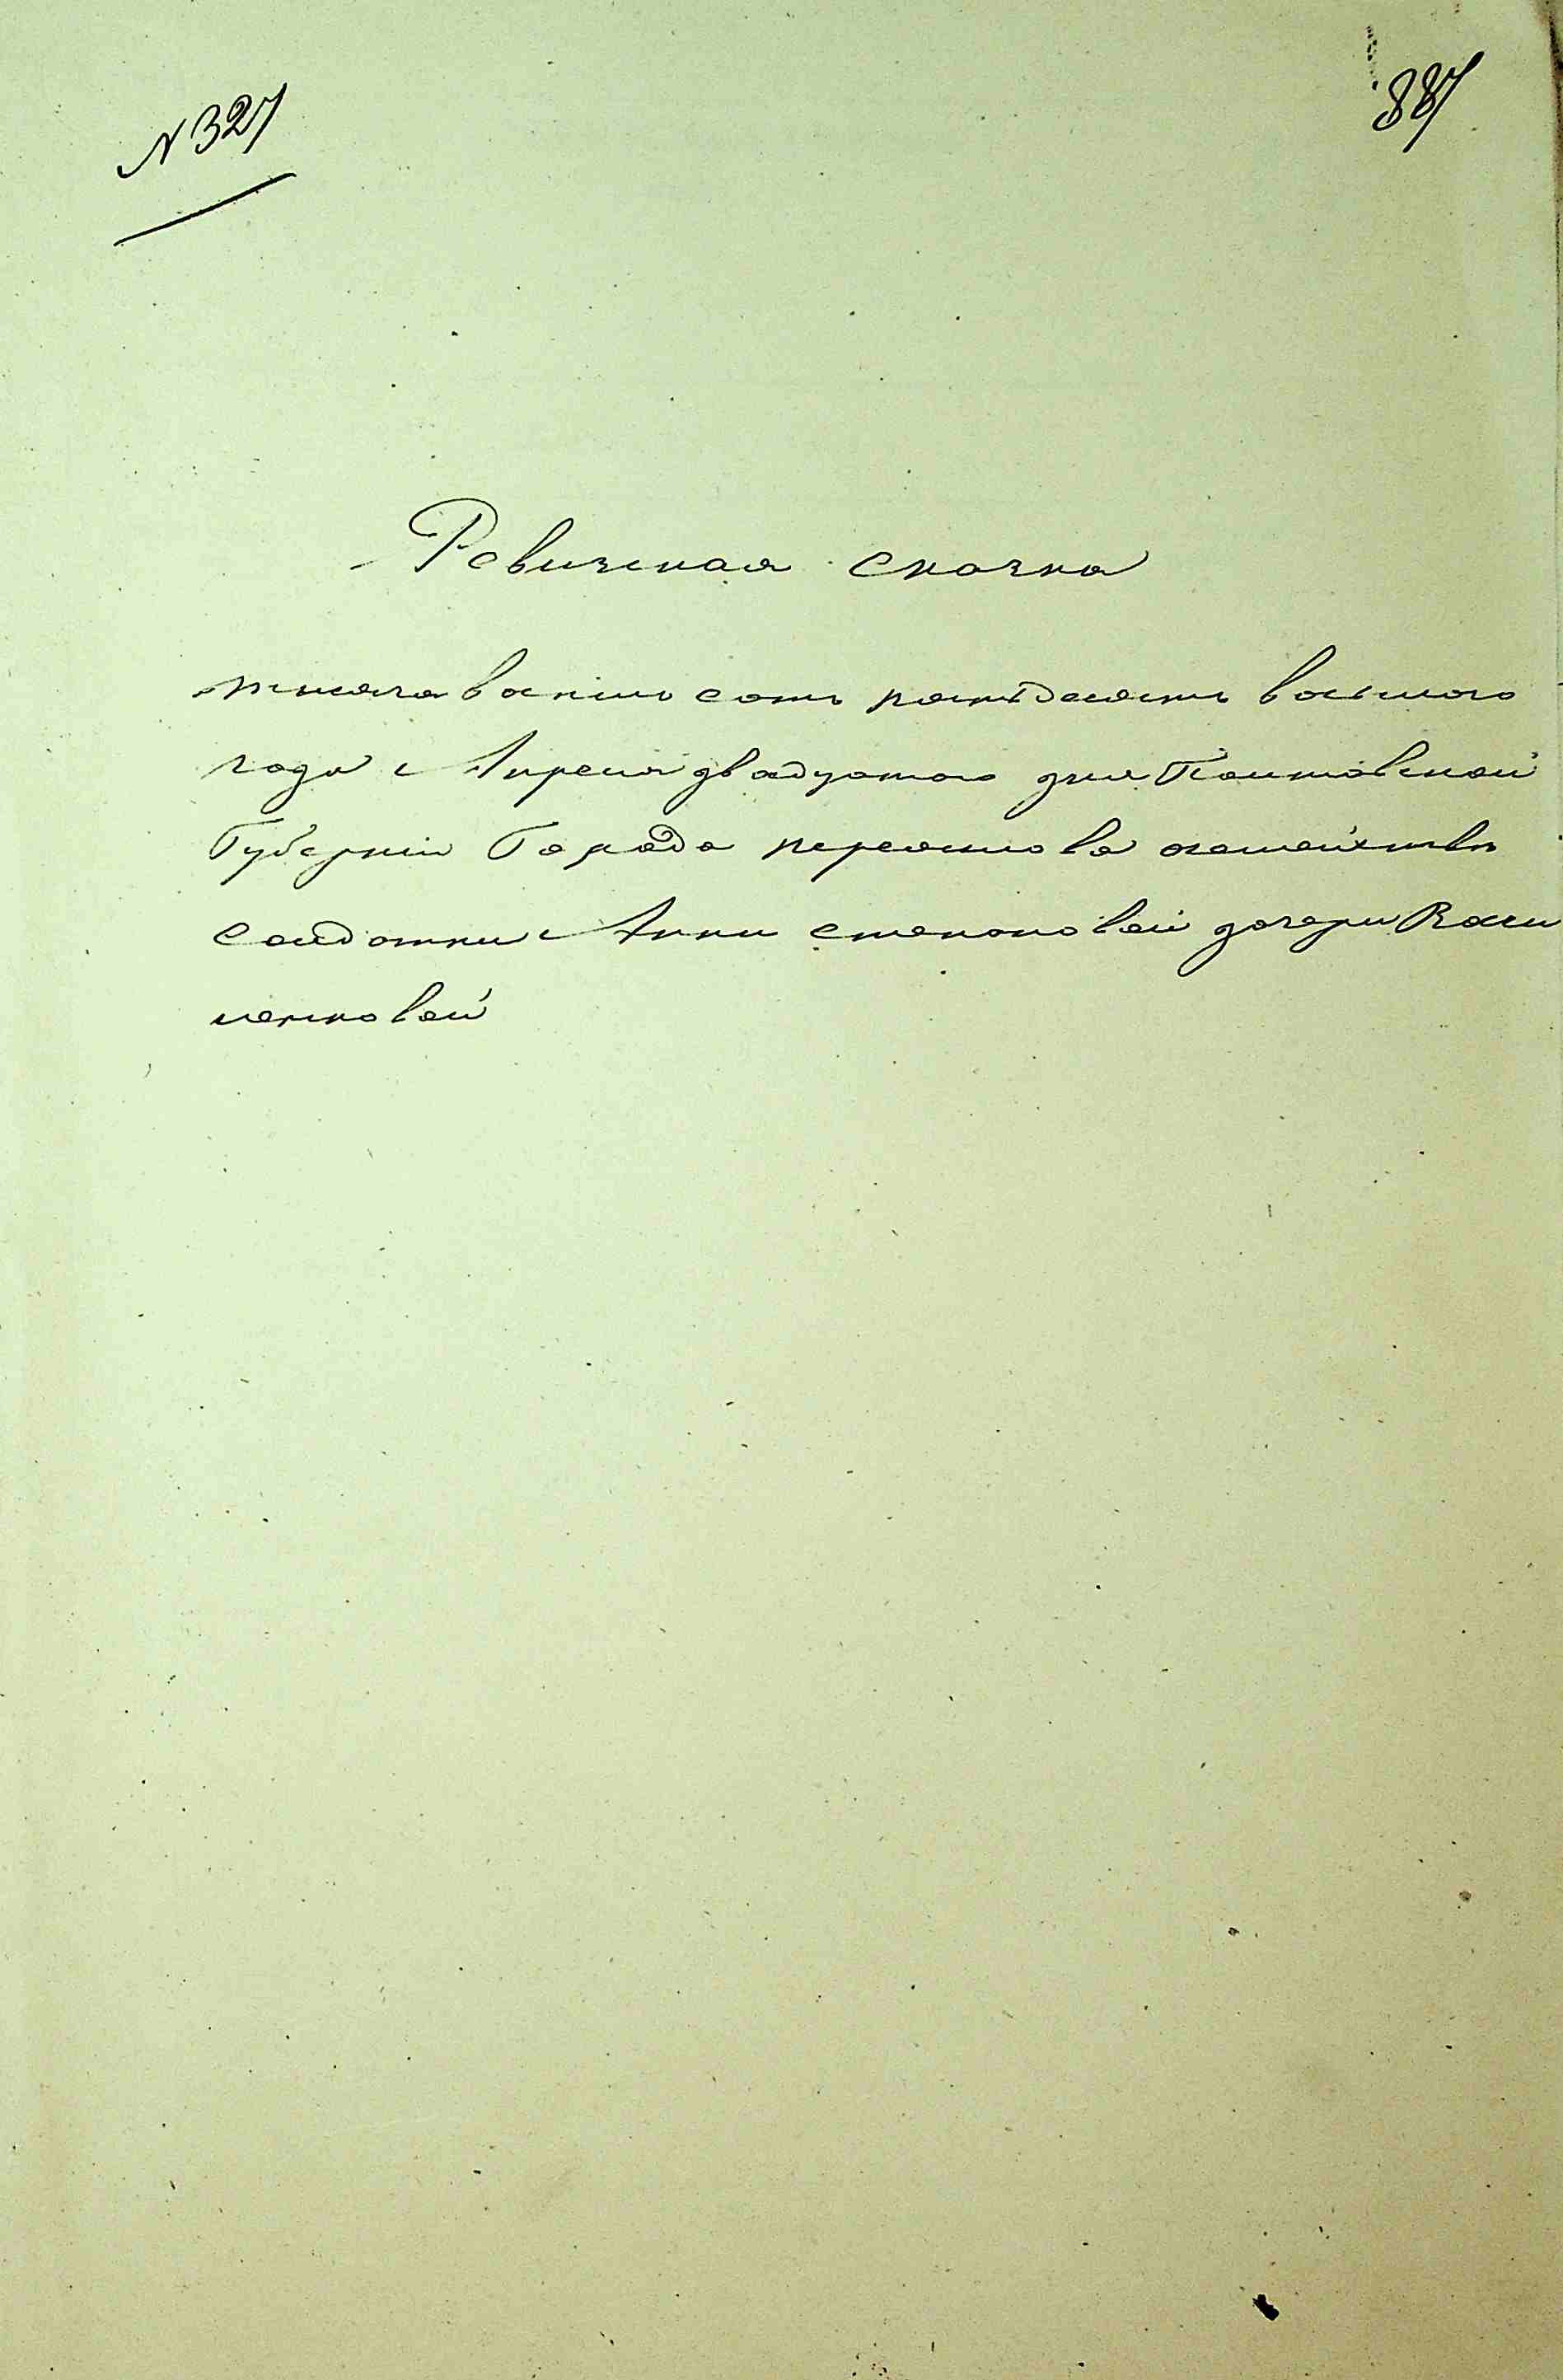 N 327
887
Ревизская сказка
тысяча восемь сотъ пятдесятъ восьмого
года Апреля двадцатого дня Полтовской
Губерніи Города переяслова
солдатки Анни степоновой дочери Васи
ленковой